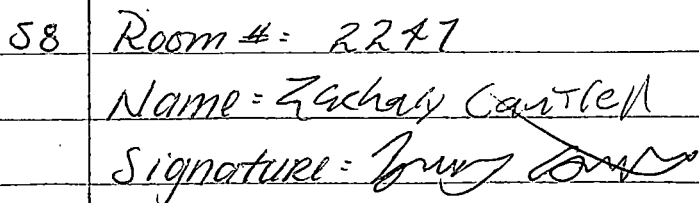 58 Room #: 2247
Name = Zachary Cantrell
Signature =